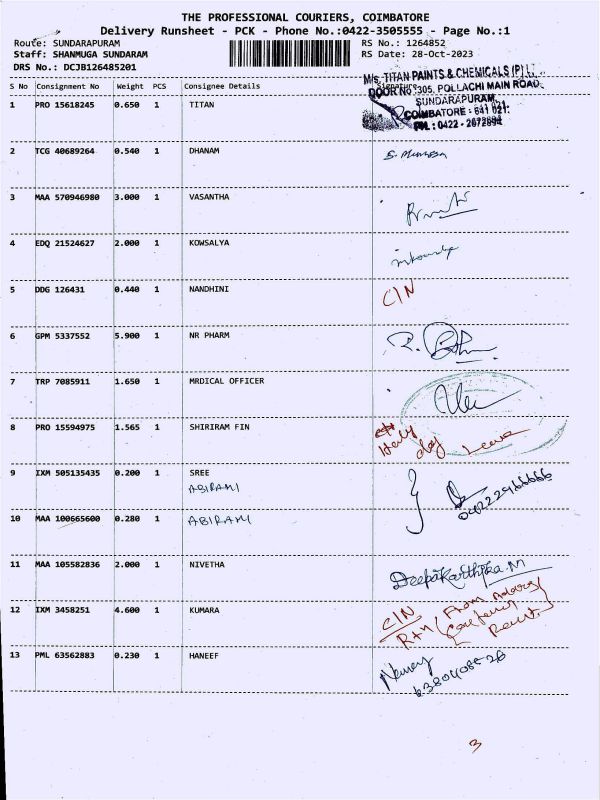 THE PROFESSIONAL COURIERS, COIMBATORE
Delivery Runsheet - PCK - Phone No.:0422-3505555 - Page No.:1
Route: SUNDARAPURAM RS No.: 1264852
Staff: SHANMUGA SUNDARAM RS Date: 28-Oct-2023
DRS No.: DCJB126485201
S No Consignment No Weight PCS Consignee Details Signature
M/s. TITAN PAINTS & CHEMICALS (P) L
DOOR NO :305, POLLACHI MAIN ROAD,
SUNDARAPURAM,
COIMBATORE - 641 021.
PH : 0422 - 2672894
1 PRO 15618245 0.650 1 TITAN
2 TCG 40689264 0.540 1 DHANAM
3 MAA 570946980 3.000 1 VASANTHA
4 EDQ 21524627 2.000 1 KOWSALYA
5 DDG 126431 0.440 1 NANDHINI C/N
6 GPM 5337552 5.900 1 NR PHARM
7 TRP 7085911 1.650 1 MRDICAL OFFICER
8 PRO 15594975 1.565 1 SHIRIRAM FIN
day Leave
9 IXM 505135435 0.200 1 SREE
ABIRAMI
10 MAA 100665600 0.280 1 ABIRAMI
11 MAA 105582836 2.000 1 NIVETHA Deepakarthika.M
12 IXM 3458251 4.600 1 KUMARA C/N
13 PML 63562883 0.230 1 HANEEF
3